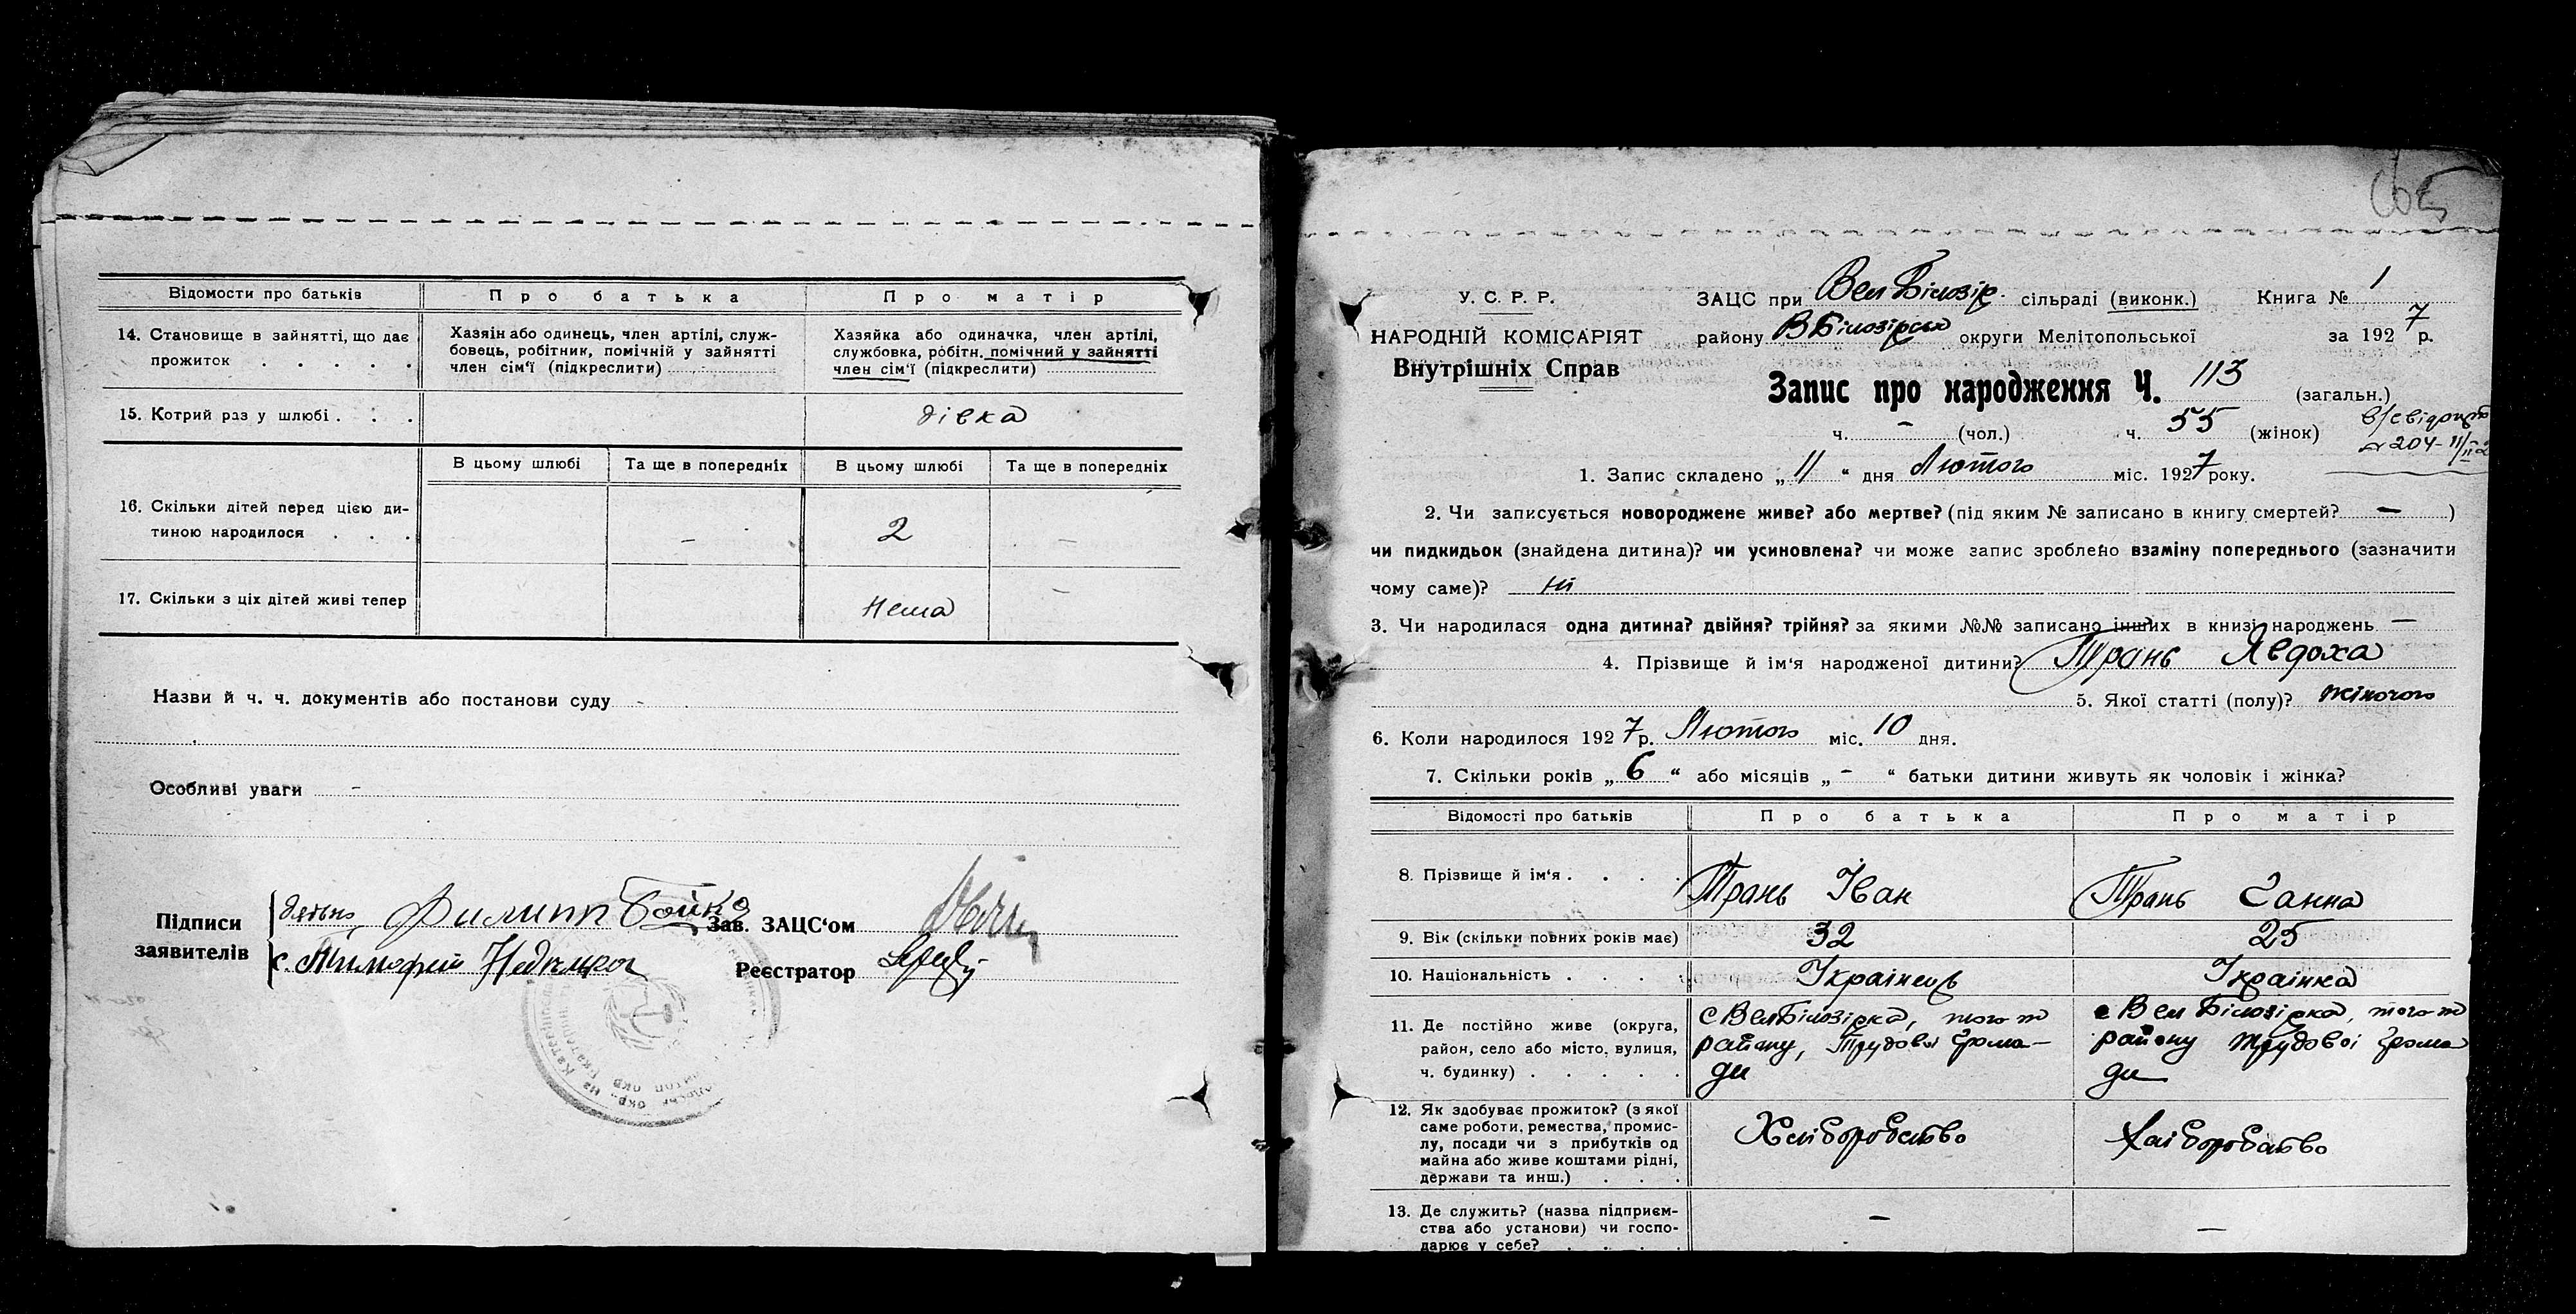 Відомости про батьків
Про батька
Про матір
14. Становище в зайнятті, що дає
прожиток . . . . .
Хазяін або одинець, член артілі, служ-
бовець, робітник, помічній у зайнятті
член сім'ї (підкреслити)
Хазяйка або одиначка, член артілі,
службовка, робітн. помічний у зайнятті
член сім'ї (підкреслити)
15. Котрий раз у шлюбі . . .
дівка
В цьому шлюбі
Та ще в попередніх
В цьому шлюбі
Та ще в попередніх
16. Скільки дітей перед цією ди-
тиною народилося . . .
-
2
-
17. Скільки з ціх дітей живі тепер
нема
-
Назви й ч. ч. документів або постанови суду -
Особливі уваги -
Підписи
заявителів
Филипп Бойко
с. Тимофей
Зав. ЗАЦС'ом
Реєстратор
У. С. Р. Р.
НАРОДНІЙ КОМІСАРІЯТ
Внутрішніх Справ
ЗАЦС при Вел Білозір. сільраді (виконк.)
Книга № 1
району В Білозірськ округи Мелітопольської
за 1927 р.
Запис про народження Ч. 113 (загальн.)
ч. - (чол.) ч. 55 (жінок)
204-11/II
1. Запис складено „ 11 “ дня Лютого міс. 1927 року.
2. Чи записується новороджене живе? або мертве? (під яким № записано в книгу смертей? — )
чи пидкидьок (знайдена дитина)? чи усиновлена? чи може запис зроблено взаміну попереднього (зазначити
чому саме)? ні
3. Чи народилася одна дитина? двійня? трійня? за якими №№ записано інших в книзі народжень —
4. Прізвище й ім'я народженої дитини? Трань Явдоха
5. Якої статті (полу)? жіночого
6. Коли народилося 1927 р. Лютого міс. 10 дня.
7. Скільки років „ 6 “ або місяців „ - “ батьки дитини живуть як чоловік і жінка?
Відомості про батьків
Про батька
Про матір
8. Прізвище й ім'я . . . .
Трань Іван
Трань Ганна
9. Вік (скільки повних років має)
32
25
10. Національність . . . .
Українець
Українка
11. Де постійно живе (округа,
район, село або місто, вулиця,
ч. будинку) . . . . .
с Вел Білозірка, того ж
району, Трудової грома-
ди
с Вел Білозірка, того ж
району Трудової грома
ди
12. Як здобуває прожиток? (з якої
саме роботи, ремества, промис-
лу, посади чи з прибутків од
майна або живе коштами рідні,
держави та инш.) . . .
Хліборобство
Хліборобство
13. Де служить? (назва підприєм-
ства або установи) чи госпо-
дарює у себе? . . . .
—
—